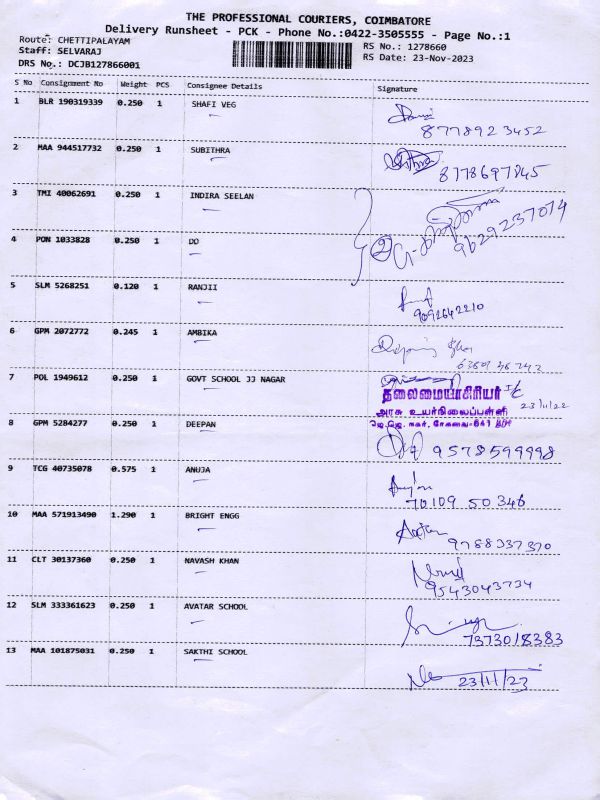 THE PROFESSIONAL COURIERS, COIMBATORE
Delivery Runsheet - PCK - Phone No.:0422-3505555 - Page No.:1
Route: CHETTIPALAYAM
Staff: SELVARAJ
DRS No.: DCJB127866001
RS No.: 1278660
RS Date: 23-Nov-2023
S No Consignment No Weight PCS Consignee Details Signature
1 BLR 190319339 0.250 1 SHAFI VEG
8778923452
2 MAA 944517732 0.250 1 SUBITHRA
8778697845
3 TMI 40062691 0.250 1 INDIRA SEELAN
9629237074
4 PON 1033828 0.250 1 DD
2
5 SLM 5268251 0.120 1 RANJII
9092642210
6 GPM 2072772 0.245 1 AMBIKA
7 POL 1949612 0.250 1 GOVT SCHOOL JJ NAGAR
தலைமையாசிரியர்
23/11/22
அரசு உயர்நிலைப்பள்ளி
8 GPM 5284277 0.250 1 DEEPAN
ஜெ.ஜெ. நகர், கோவை-641
9578599998
9 TCG 40735078 0.575 1 ANUJA
70109 50346
10 MAA 571913490 1.290 1 BRIGHT ENGG
9788337370
11 CLT 30137360 0.250 1 NAVASH KHAN
9543043734
12 SLM 333361623 0.250 1 AVATAR SCHOOL
7373018383
13 MAA 101875031 0.250 1 SAKTHI SCHOOL
23/11/23